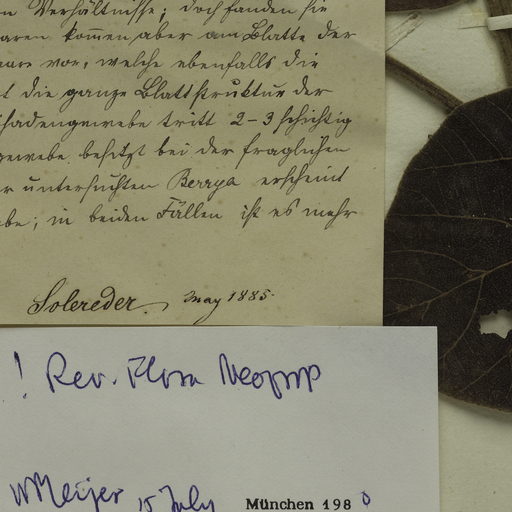 n Verhältnisse; doch fanden sie
aren kommen aber am Blatte der
aare vor, welche ebenfalls die
t die ganze Blattstruktur der
isadengewebe tritt 2-3 schichtig
gewebe besitzt bei der fraglichen
r untersuchten Berrya erscheint
be; in beiden Fällen ist es mehr
Solereder. May 1885.
! Rev. Flora Neotrop
W Meijer 15 July München 1980